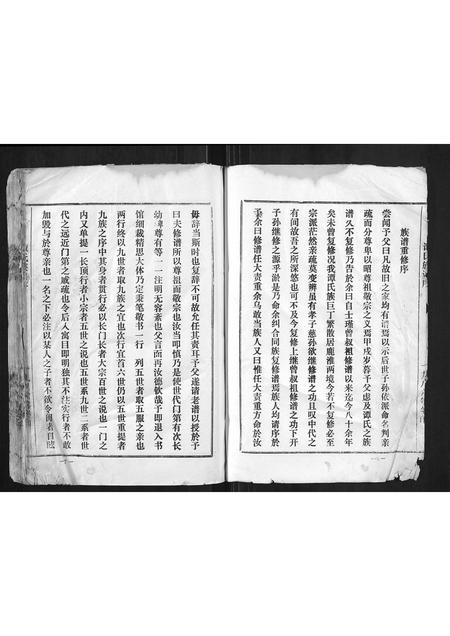 族谱重修序
尝闻予父曰凡故旧之家均有谱焉以示后世子孙依派命名判亲
疏而分尊卑以昭尊祖敬宗之义焉甲戌岁暮予父虑及谭氏之族
谱久不复修乃告於余曰自士瑾曾叔祖修谱以来迄今八十余年
矣未曾复修况我谭氏族巨丁繁散居鹿淮两境今若不复修必至
宗派茫然亲疏莫变辨虽有孝子慈孙欲继修谱之功且叹中代之
有间故吾之所深悠也可不及今复修上继曾叔祖修谱之功下开
子孙继修之源乎淤是乃命余纠合同族复修谱焉族人均请序於
予余曰修谱任大责重余乌敢当族人又曰惟任大责重方命於汝
毋辞当斯时也复辞不可故允任其责耳予父遂请老谱以授於予
曰夫修谱所以尊祖而敬宗也汝当叩慎乃是使世代门第有次长
幼尊有等一一注明无容紊也父言面再汝德钦哉予即退入书
馆细裁精思大体乃定秉笔敬书一行列五世者取五服之亲也
两行终以九世者取九族之宜也次行宜首六世仍以五世重提者
九族之序中其身者贯行必以长门长者大宗百世之说也一门之
内又单提一长顶行者小宗者五世之说也五世系九世二系者世
代之远近门第之戚疏也令后人寓目即明独其不注实行者不敢
加毁与於尊亲也一名之下必注以某人之子者不欲令阅者自眩